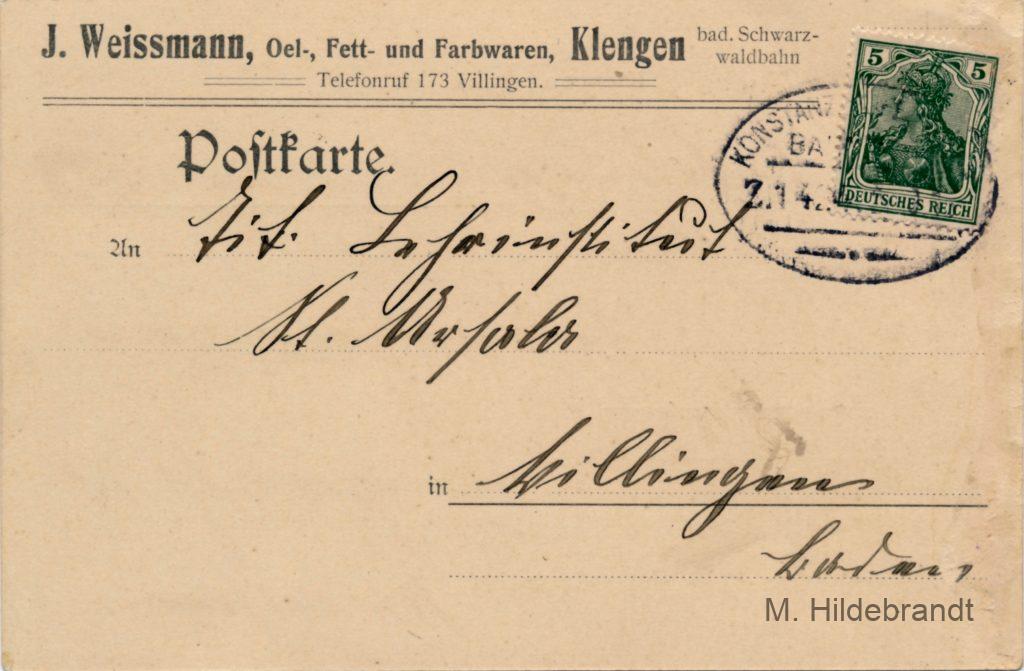 J. Weissmann, Oel-, Fett- und Farbwaren, Klengen bad. Schwarz-
waldbahn
Telefonruf 173 Villingen.
5 5
DEUTSCHES REICH
KONSTANZ
Poſtkarte.
An Tit. Lehrinstitut
St. Ursula
in Villingen
Baden
M. Hildebrandt